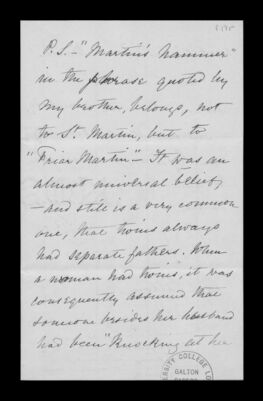 P.S. - "Martin's hammer"
in the phrase quoted by
my brother, belongs, not
to St. Martin, but to
"Friar Martin" - It was an
almost universal belief,
- and still is a very common
one, that twins always
had separate fathers. When
a woman had twins, it was
consequently assumed that
someone besides her husband
had been "knocking at her
COLLEGE LO
GALTON